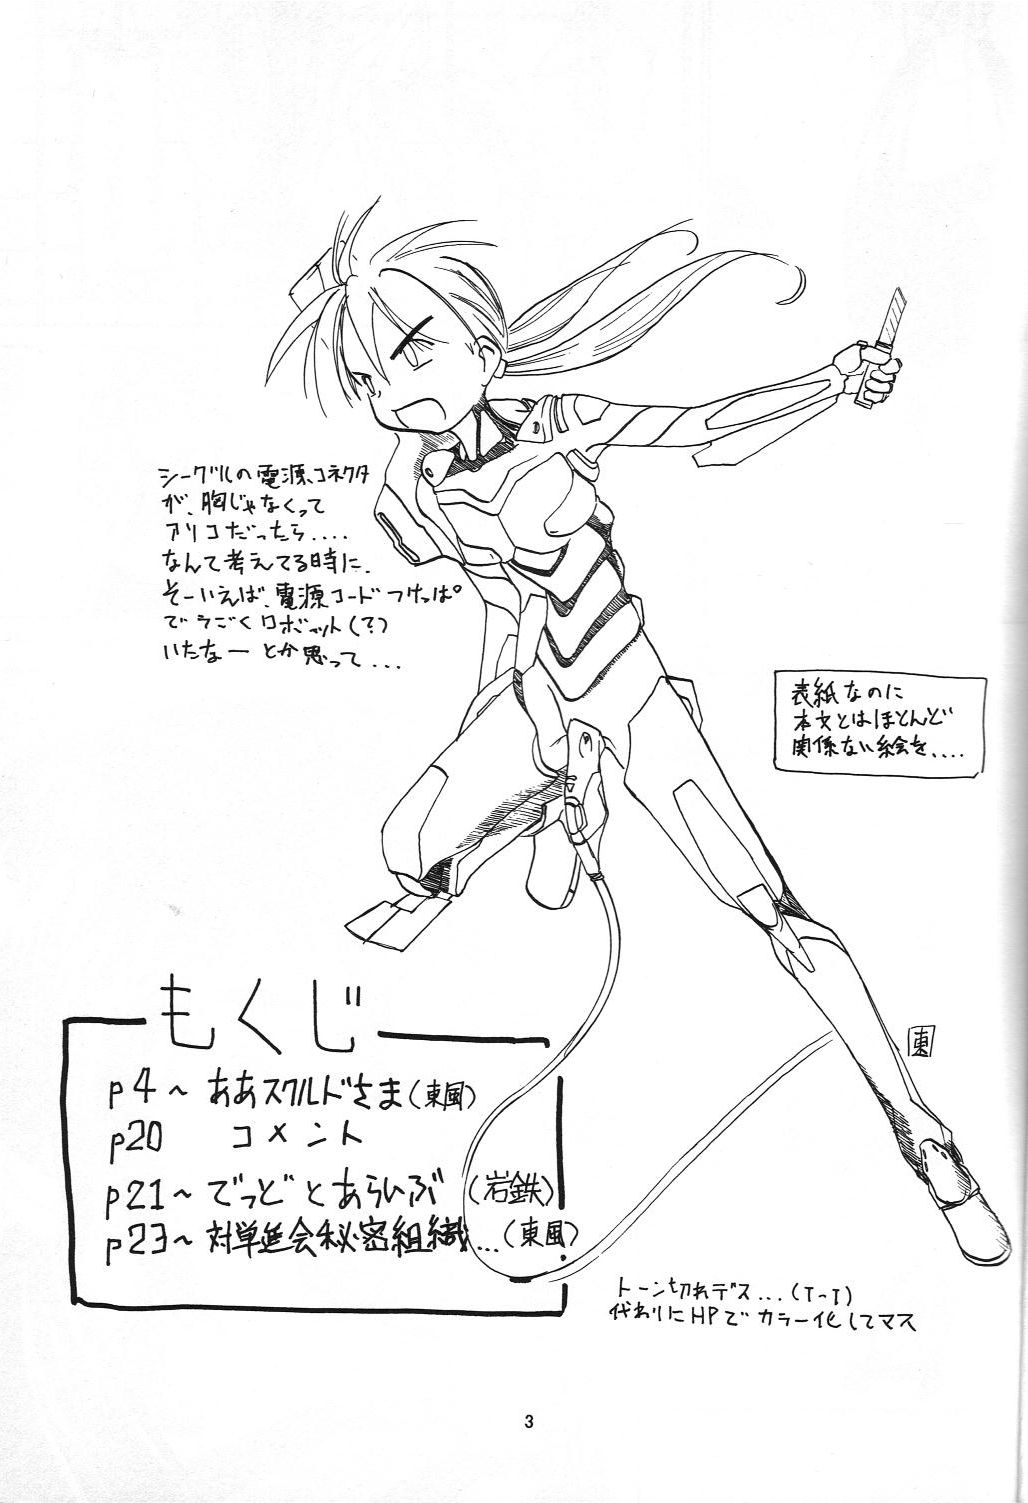 シーグルの電源コネクタ
が、胸じゃなくって
アソコだったら....
なんて考えてる時に、
そーいえば、電源コードつけっぱ
でうごくロボット(?)
いたなー とか思って...
表紙なのに
本文とはほとんど
関係ない絵を....
もくじ
p4～ ああスクルドさま(東風)
p20 コメント
p21～ でっどとあらいぶ (岩鉄)
p23～ 対単進会秘密組織...(東風)
東
トーン切れデス...(T-T)
代わりにHPでカラー化してマス
3